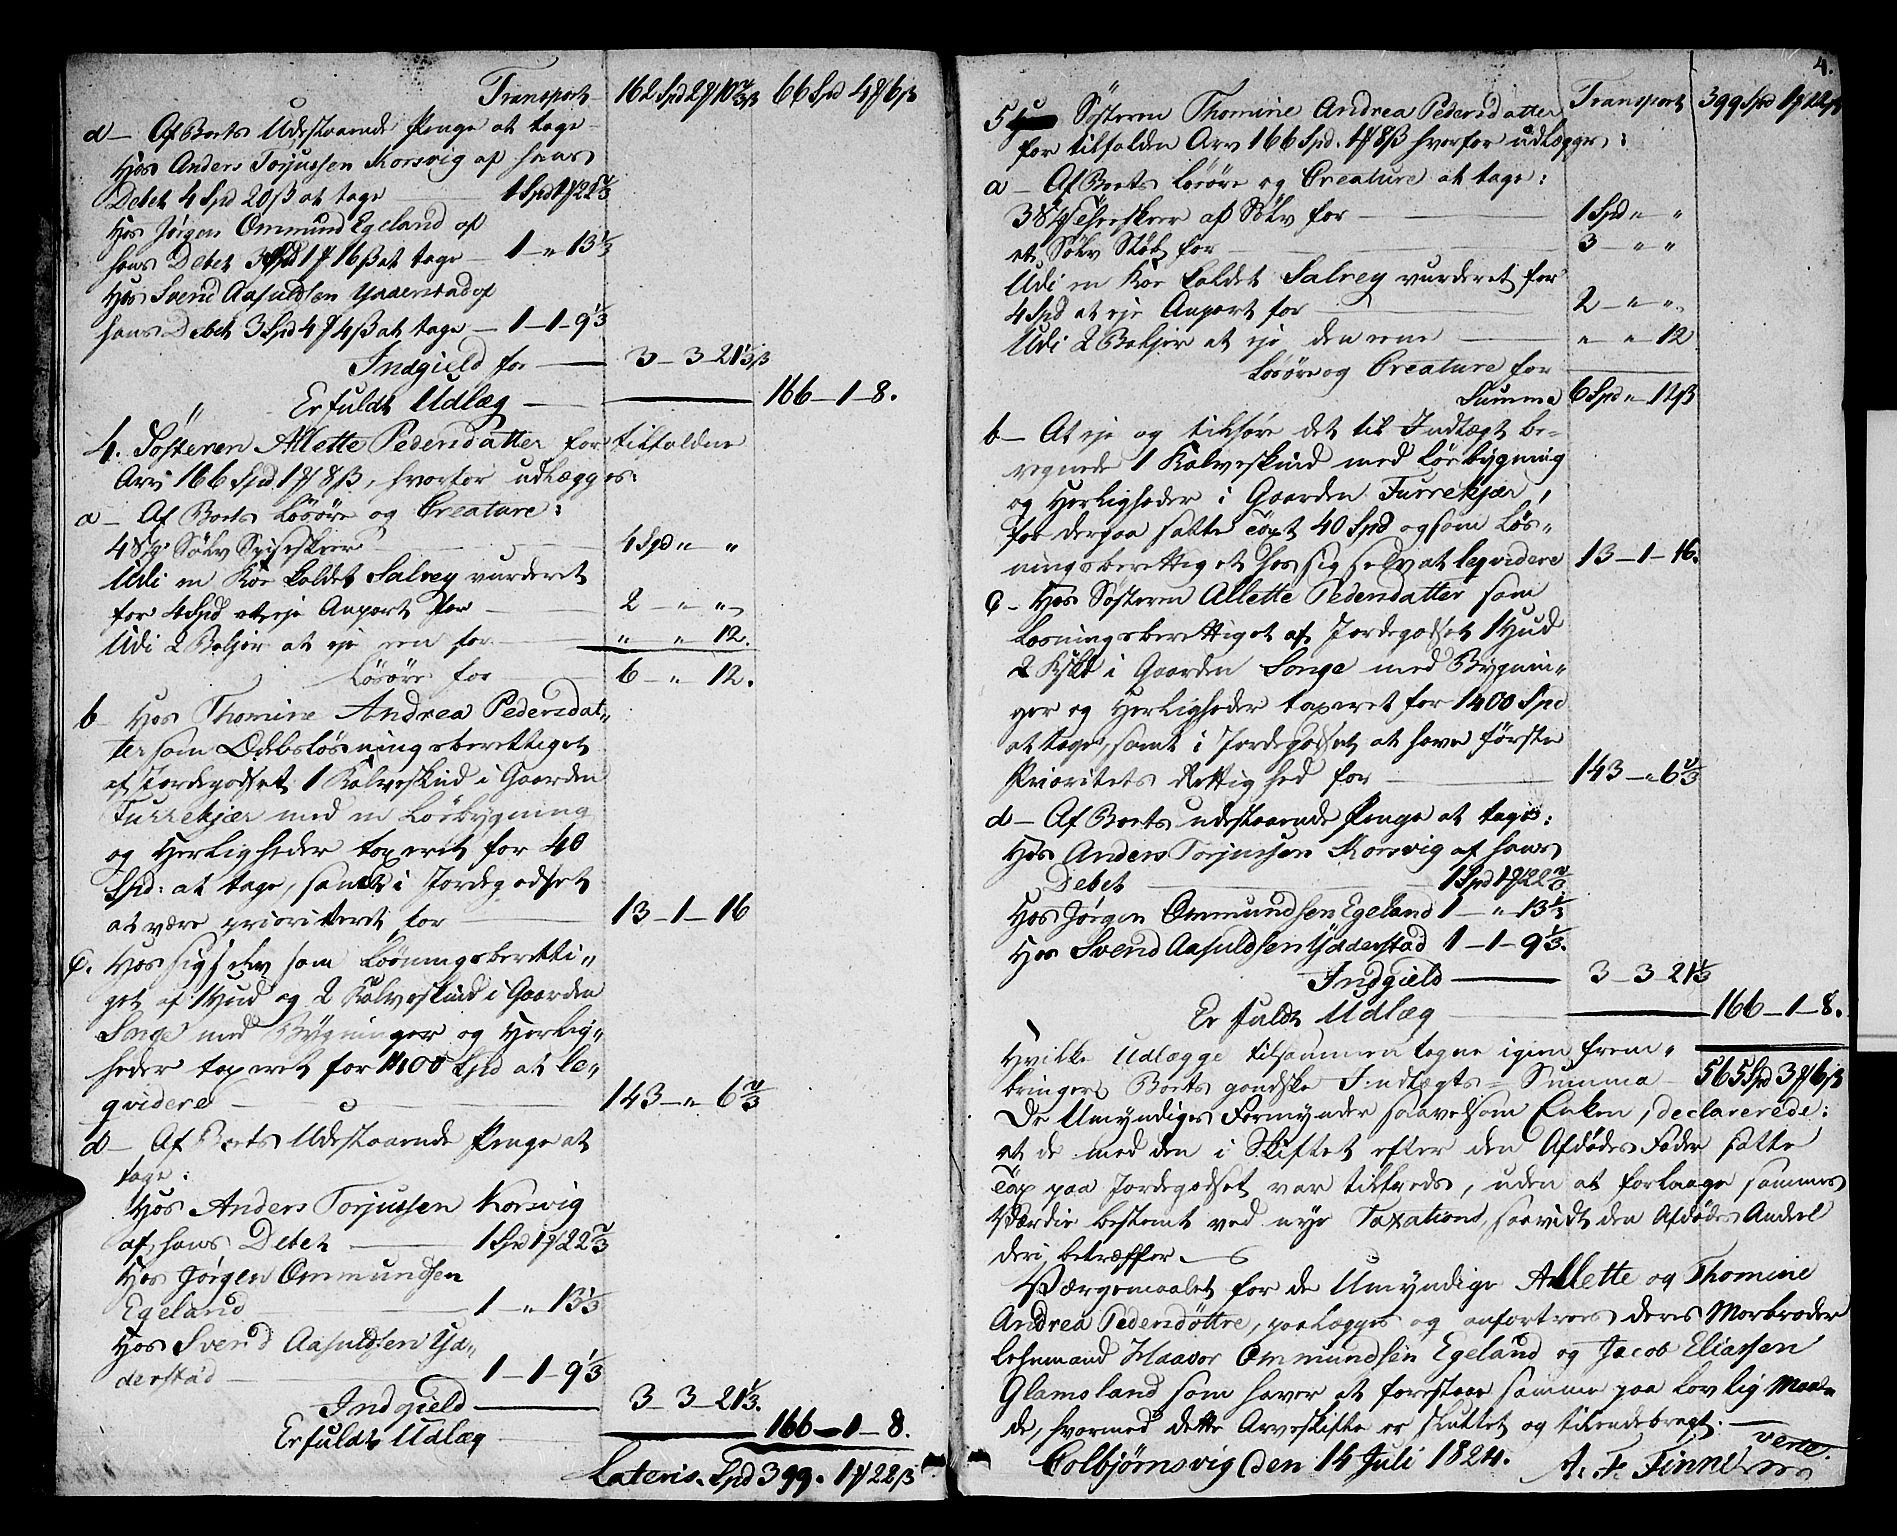 Transport 162 Spd 2 ʄ 10 2/3 ß 66 Spd 4 ʄ 6 ß
d — Af Boets Udestaaende Penge at tage
Hos Anders Torjussen Korsvig af hans
Debet 4 Spd 20 ß at tage — 1 Spd 1 ʄ 22 2/3
Hos Jørgen Ommund Egeland af
hans Debet 3 Spd 1 ʄ 16 ß at tage — 1 — " 13 1/3
Hos Svend Aasuldsen Ydderstad af
hans Debet 3 Spd 4 ʄ 4 ß at tage — 1 — 1 — 9 1/3
Indgield for — 3 — 3 — 21 1/3 ß
Er fuldt Udlæg — 166 — 1 — 8.
4. Søsteren Allette Pedersdatter for tilfaldne
Arv 166 Spd. 1 ʄ 8 ß, hvorfor udlægges:
a — Af Boets Løsøre og Creature:
4 St. Sølv Spiseskeer 4 Spd " "
Udi en Koe kaldet Salrey vurderet
for 4 Spd at eje Anpart for — 2 — " "
Udi 2 Baljer at eje een for " " 12.
Løsøre for 6 — " 12.
b Hos Thomine Andrea Pedersdat-
ter som Odelsløsningsberettiget
af Jordegodset 1 Kalveskind i Gaarden
Furrekjær med en Løebygning
og Herligheder taxeret for 40
Spd: at tage, samt i Jordegodset
at være prioritteret for — 13 — 1 — 16
c. Hos sig selv som Løsningsberetti-
get af 1 Hud og 2 Kalveskind i Gaarden
Songe med Bygninger og Herlig-
heder taxeret for 1400 Spd at le-
qvidere — 143 — " 6 2/3
d — Af Boets Udestaaende Penge at
tage:
Hos Anders Torjussen Korsvig
af hans Debet — 1 Spd 1 ʄ 22 2/3
Hos Jørgen Ommundsen
Egeland — 1 — " 13 1/3
Hos Svend Aasuldsen Yd-
derstad — 1 — 1 — 9 1/3
Indgield — 3 — 3 — 21 1/3.
Er fuldt Udlæg 166 — 1 — 8.
Lateris. Spd 399. 1 ʄ 22 ß
4.
Transport 399 Spd 1 ʄ 22 ß
5 Søsteren Thomine Andrea Pedersdatter
for tilfalden Arv 166 Spd. 1 ʄ 8 ß hvorfor udlægges:
a — Af Boets Løsøre og Creature at tage:
3 St. Theeskeer af Sølv for — 1 Spd " "
et Sølv Støb for — 3 — " "
Udi en Koe kaldet Salrey vurderet for
4 Spd at eje Anpart for — 2 — " "
Udi 2 Baljer at eje den eene — " " 12
Løsøre og Creature for
Summa 6 Spd " — 12 ß
b — At eje og tilføre det til Indtægt be-
regnede 1 Kalveskind med Løebygning
og Herligheder i Gaarden Furrekjær,
for derpaa satte Taxt 40 Spd og som Løs-
ningsberettiget hos sig selv at leqvidere 13 — 1 — 16.
c — Hos Søsteren Allette Pedersdatter som
Løsningsberettiget af Jordegodset 1 Hud
2 Kskd i Gaarden Songe med Bygnin-
ger og Herligheder taxeret for 1400 Spd
at tage, samt i Jordegodset at have første
Prioritets Rettighed for — 143 — " 6 2/3
d — Af Boets udestaaende Penge at tage:
Hos Anders Torjussen Korsvig af hans
Debet — 1 Spd 1 ʄ 22 2/3
Hos Jørgen Ommundsen Egeland 1 — " 13 1/3
Hos Svend Aasuldsen Ydderstad 1 — 1 — 9 1/3.
Indgield — 3 — 3 — 21 1/3
Er fuldt Udlæg — 166 — 1 — 8.
Hvilke Udlægge tilsammentagne igien frem-
bringer Boets gandske Indtægts = Summa — 565 Spd 3 ʄ 6 ß
De Umyndiges Formynder saavelsom Enken, declarerede:
at de med den i Skiftet efter den Afdødes Fader satte
Tax paa Jordegodset var tilfreds, uden at forlange sammes
Værdie bestemt ved nye Taxation, saavidt den Afdødes Andeel
deri betræffer.
Værgemaalet for de Umyndige Allette og Thomine
Andrea Pedersdøttre, paalegges og anfortroes deres Morbroder
Lehnsmand Haavor Ommundsen Egeland og Jacob Eliassen
Glamsland som haver at forestaae samme paa lovlig Maa-
de, hvormed dette Arveskifte er sluttet og tilendebragt. —
Colbjørnsvig den 14 Juli 1824. A. F. Finne
verte.